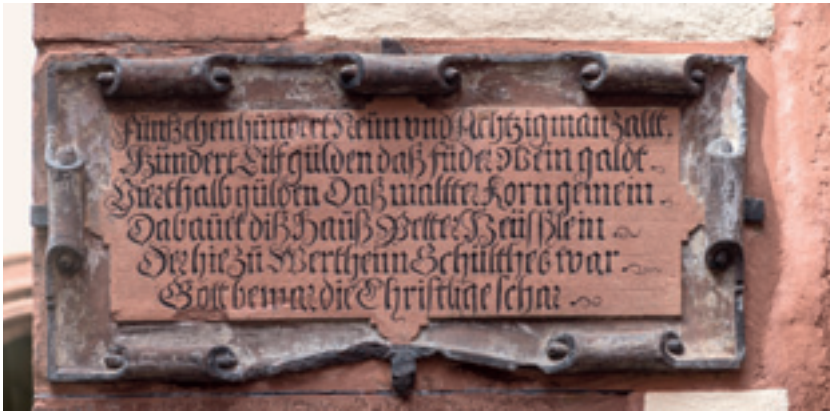 Fünfzehenhundert Neün vnd Achtzig man zallt.
Hündert Eilf gülden daß füder Wein galdt
Vierthalb gülden Daß mallter Korn gemein
Da bauet diß Hauß Petter Heüsslein
Der hie zü Wertheim Schultheß war
Gott bewar die Christlige schar